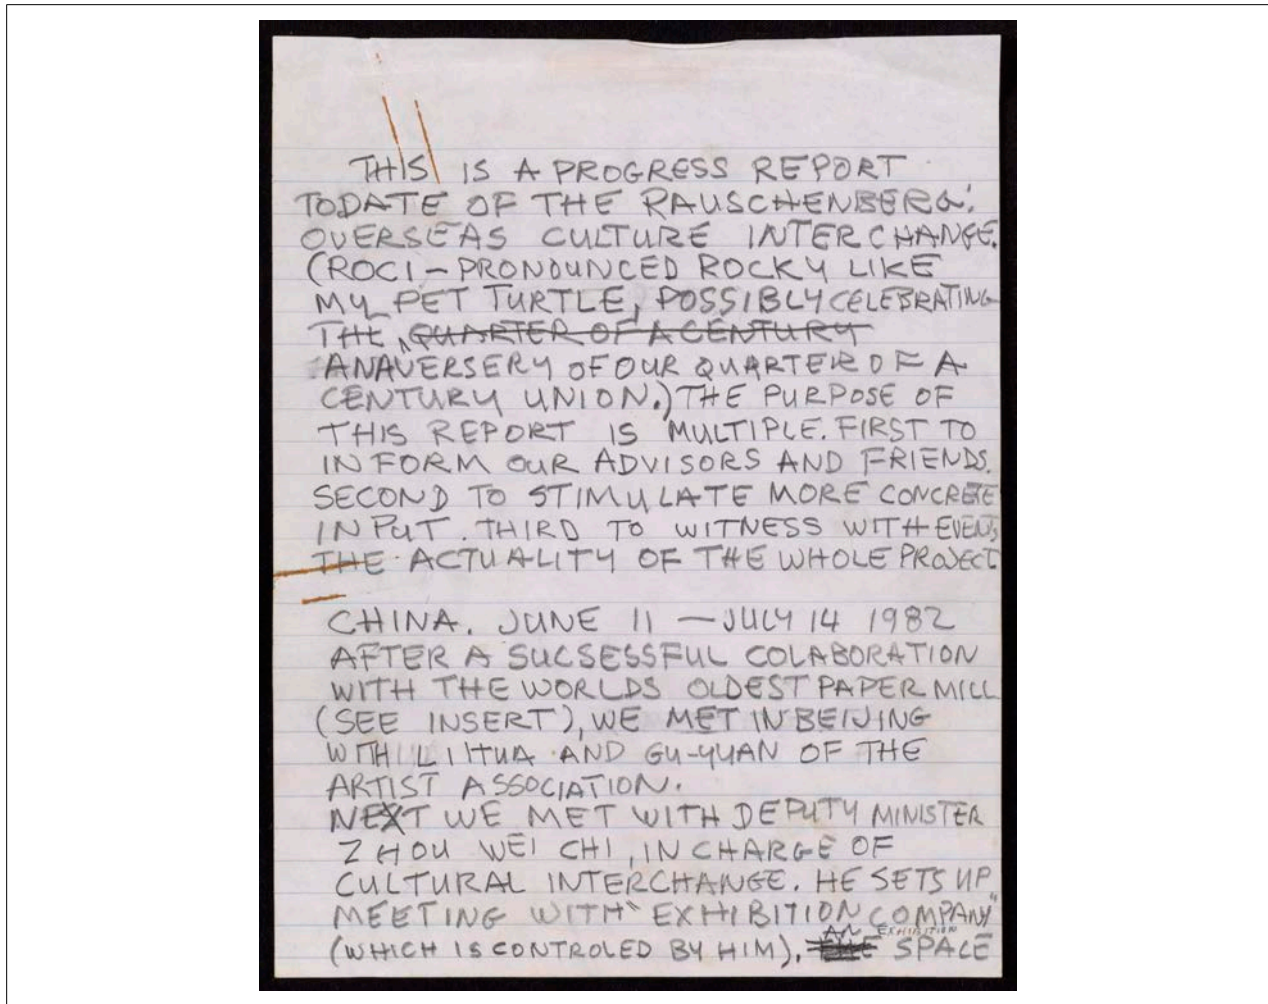 THIS IS A PROGRESS REPORT
TODATE OF THE RAUSCHENBERG:
OVERSEAS CULTURE INTERCHANGE.
(ROCI – PRONOUNCED ROCKY LIKE
MY PET TURTLE, POSSIBLY CELEBRATING
THE QUARTER OF A CENTURY
ANAVERSERY OF OUR QUARTER OF A
CENTURY UNION.) THE PURPOSE OF
THIS REPORT IS MULTIPLE. FIRST TO
INFORM OUR ADVISORS AND FRIENDS.
SECOND TO STIMULATE MORE CONCRETE
INPUT. THIRD TO WITNESS WITH EVENTS
THE ACTUALITY OF THE WHOLE PROJECT
CHINA. JUNE 11 — JULY 14 1982
AFTER A SUCSESSFUL COLABORATION
WITH THE WORLDS OLDEST PAPER MILL
(SEE INSERT), WE MET IN BEIJING
WITH LI HUA AND GU-YUAN OF THE
ARTIST ASSOCIATION.
NEXT WE MET WITH DEPUTY MINISTER
ZHOU WEI CHI, IN CHARGE OF
CULTURAL INTERCHANGE. HE SETS UP
MEETING WITH "EXHIBITION COMPANY"
(WHICH IS CONTROLED BY HIM). THE AN EXHIBITION SPACE